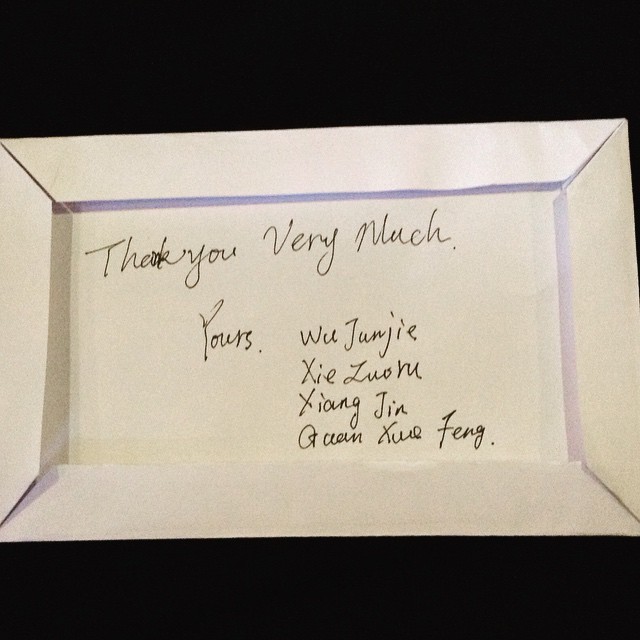 Thank you Very Much.
Yours. Wu Junjie
Xie Luoru
Xiang Jin
Guan Xue Feng.